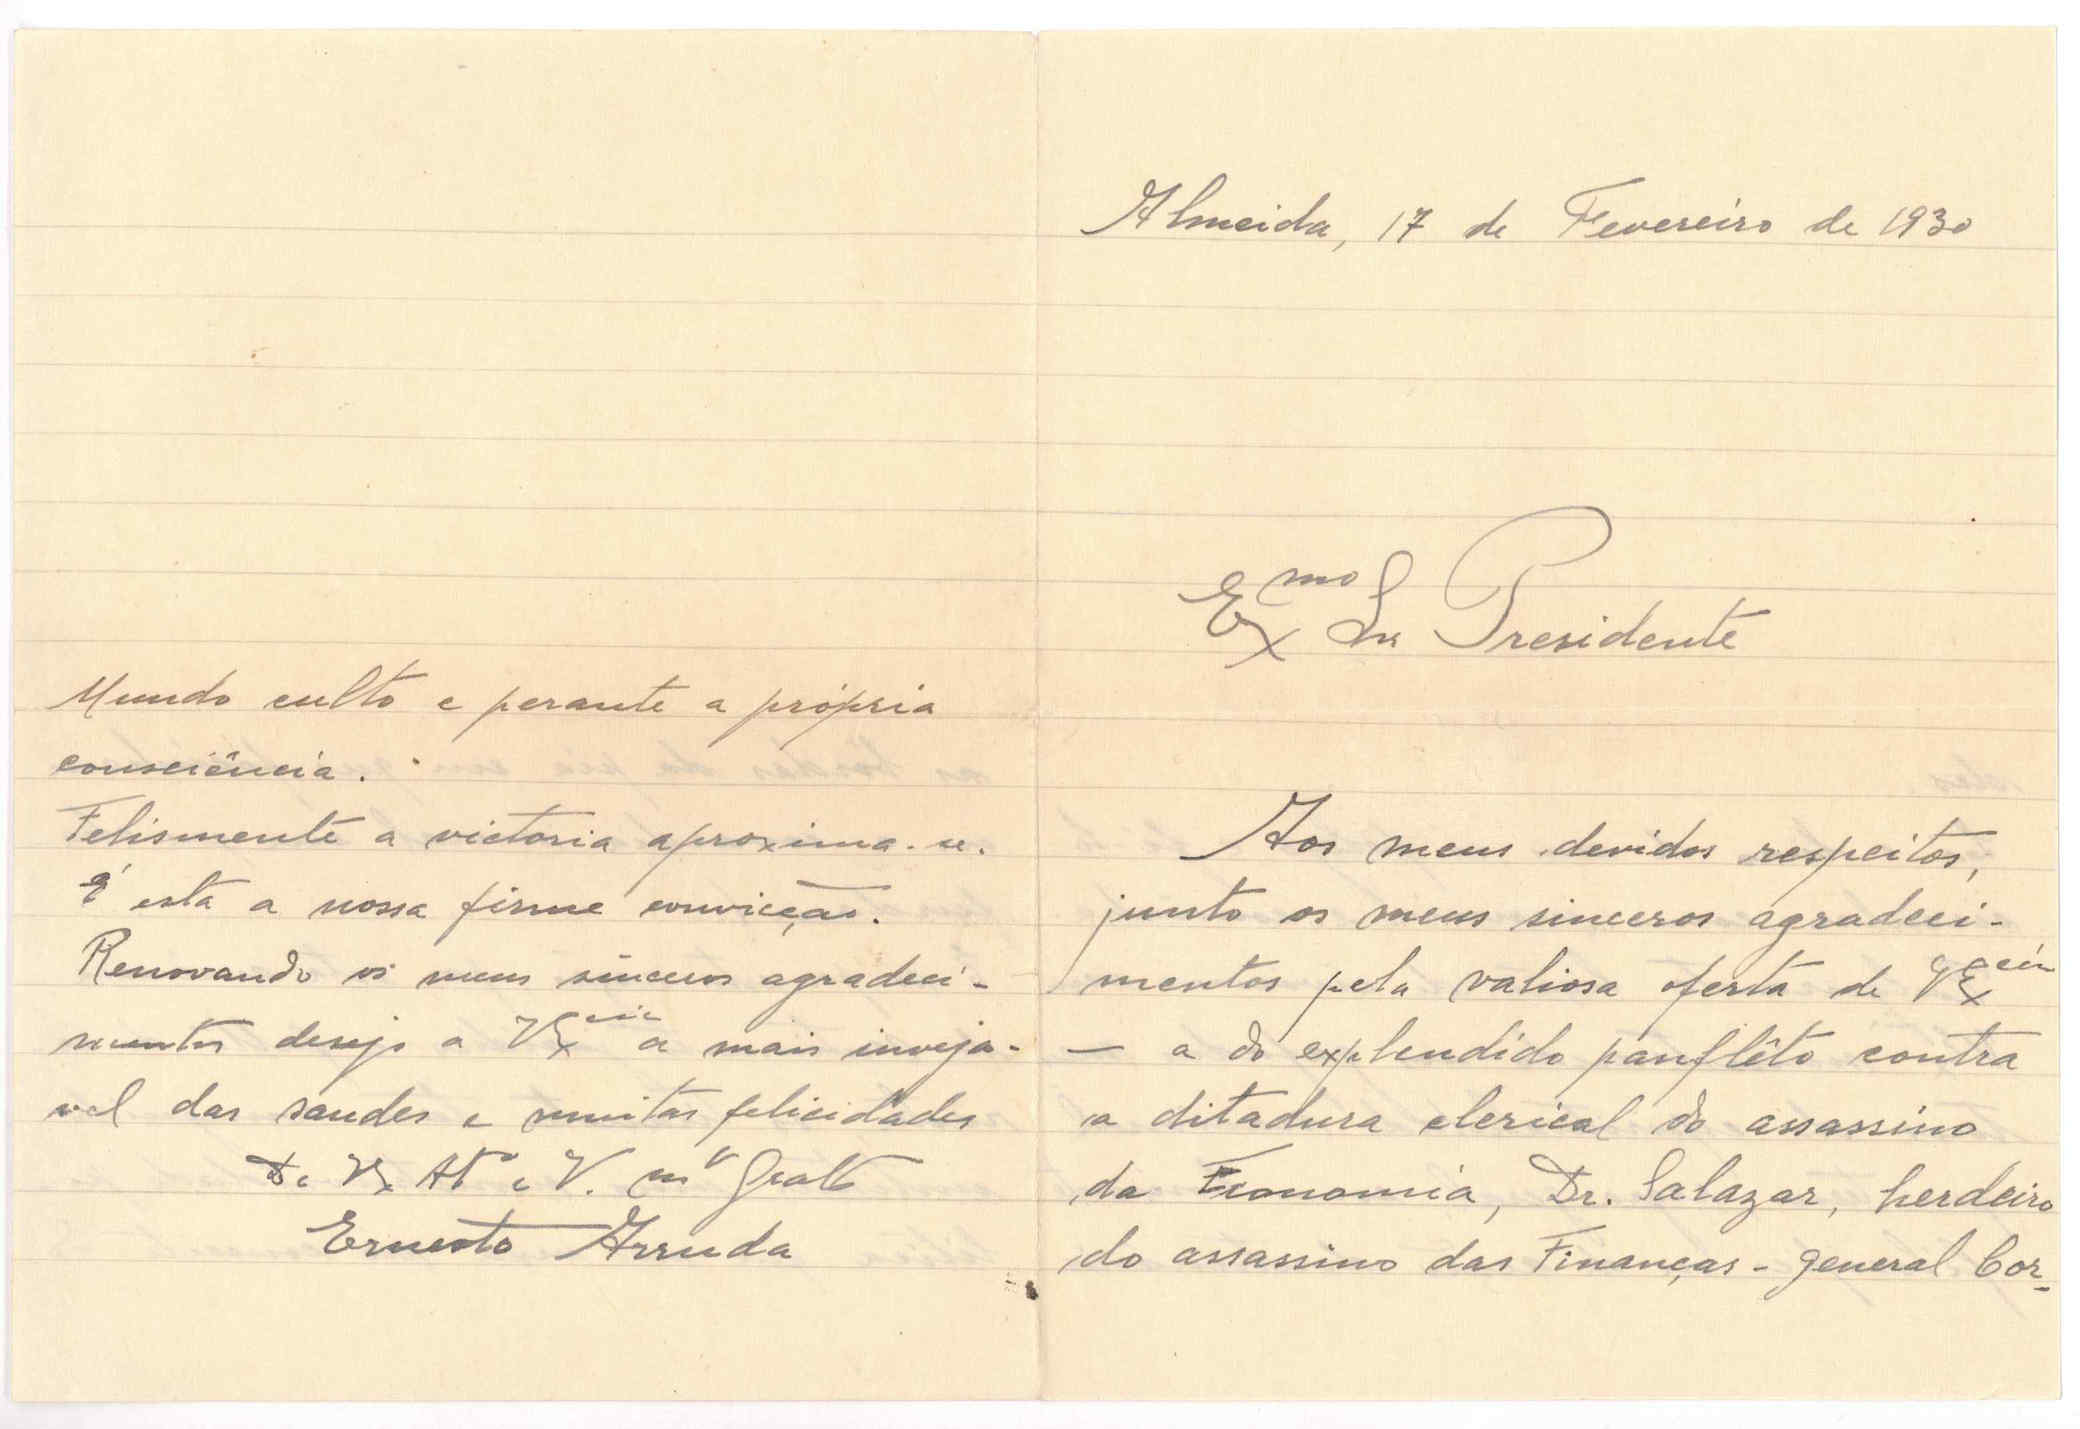 Almeida, 17 de Fevereiro de 1930
Exmo Snr Presidente
Aos meus devidos respeitos,
junto os meus sinceros agradeci-
mentos pela valiosa oferta de VExcia
— a do explendido panflêto contra
a ditadura clerical do assassino
da Economia, Dr. Salazar, herdeiro
do assassino das Finanças - general Cor-
Mundo culto e perante a própria
consciência.
Felismente a victoria aproxima-se.
É esta a nossa firme convicção.
Renovando os meus sinceros agradeci-
mentos desejo a VExcia a mais inveja-
vel das saudes e muitas felicidades
De VEx Atº e V. mtº Grato
Ernesto Arruda